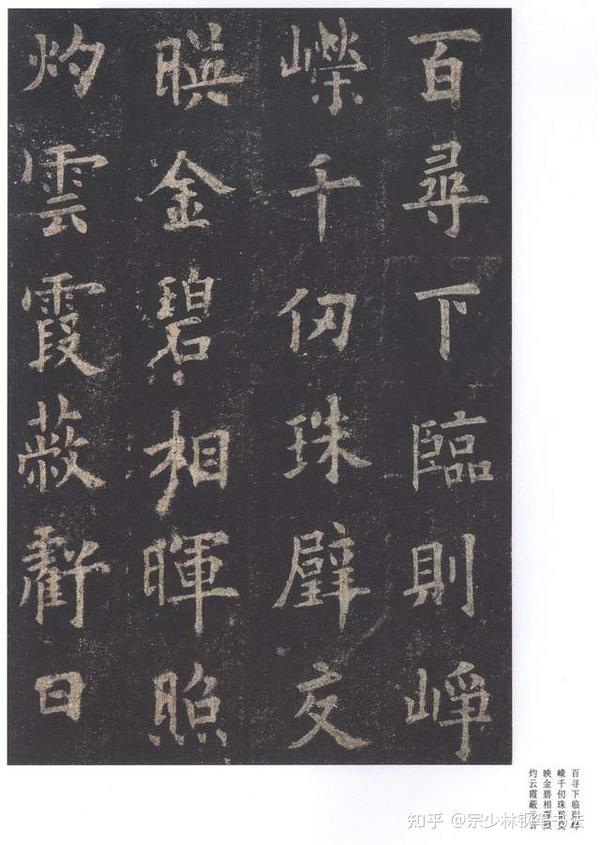 百尋下臨則崢
嶸千仞珠璧交
暎金碧相暉照
灼雲霞蔽虧日
百寻下临则峥
嵘千仞珠璧交
映金碧相晖照
灼云霞蔽亏日
知乎 @宗少林钢笔书法